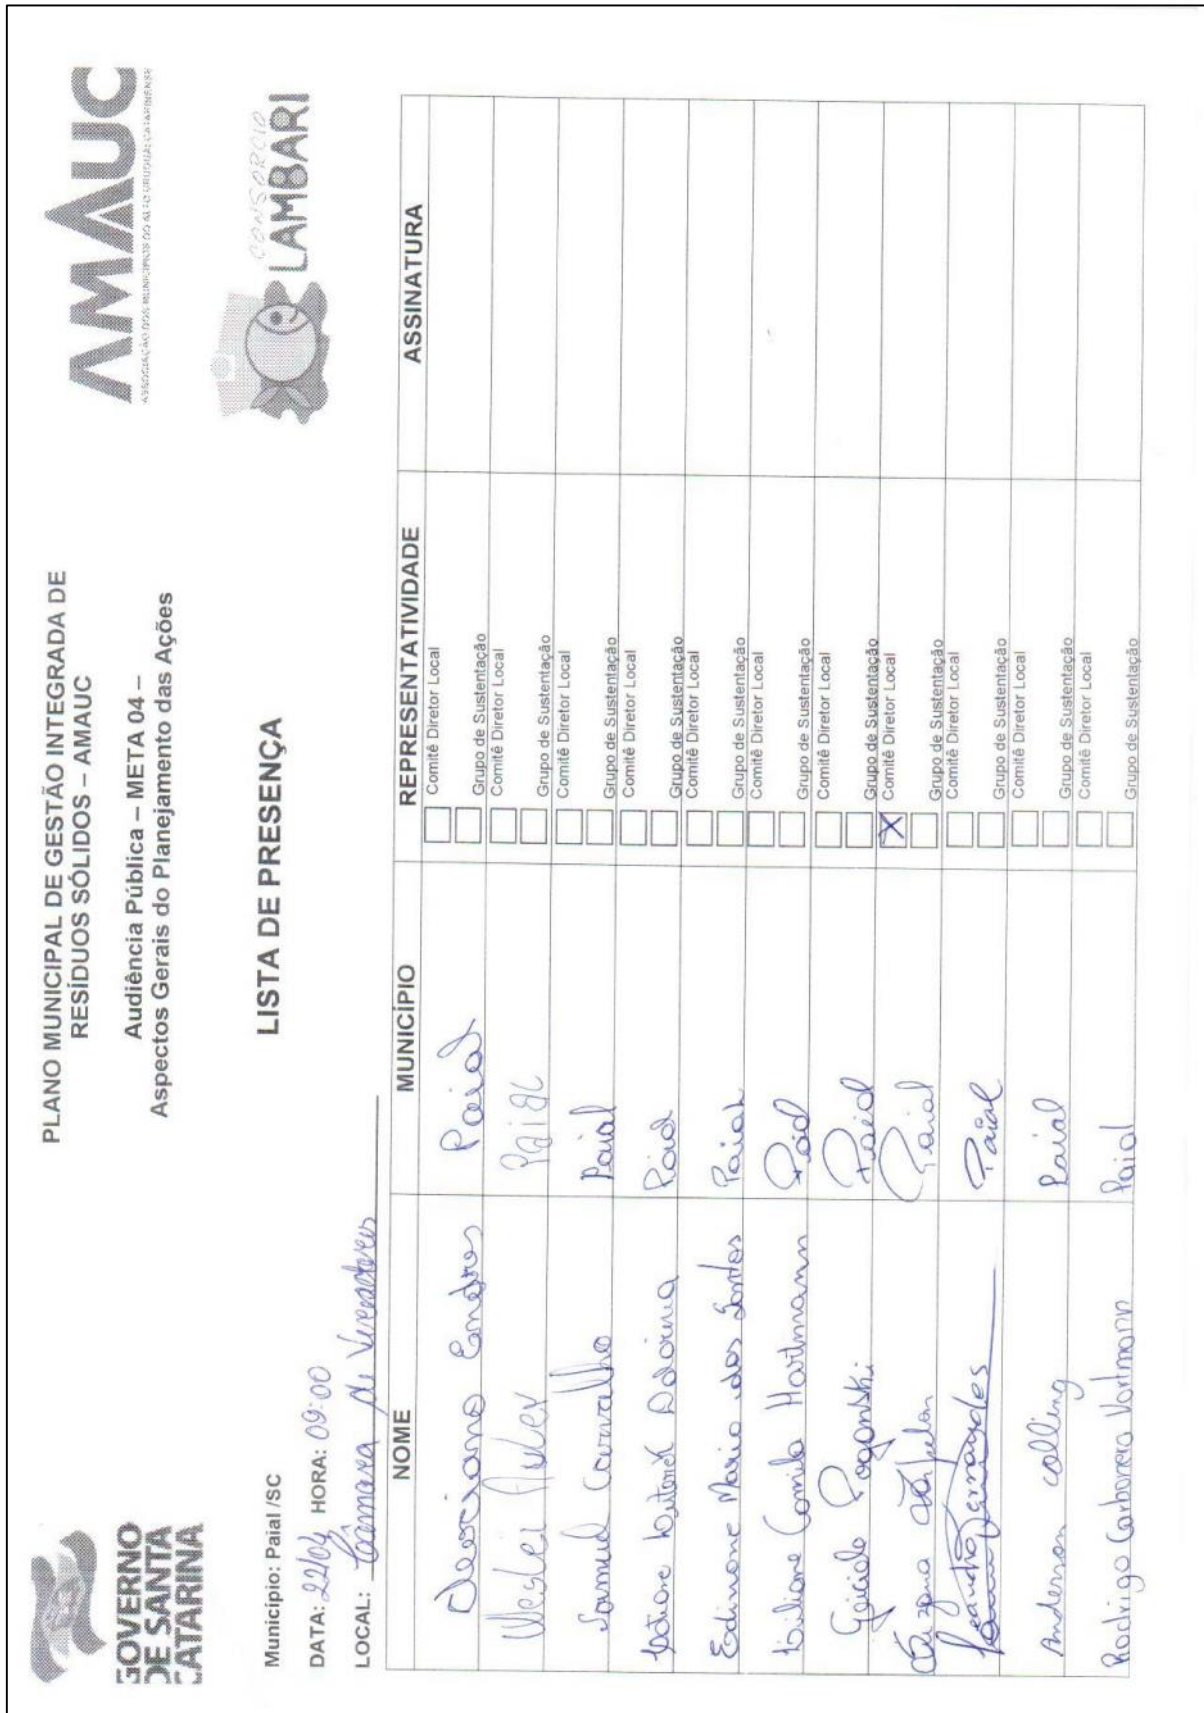 GOVERNO
DE SANTA
CATARINA
PLANO MUNICIPAL DE GESTÃO INTEGRADA DE
RESÍDUOS SÓLIDOS – AMAUC
Audiência Pública – META 04 –
Aspectos Gerais do Planejamento das Ações
AMAUC
ASSOCIAÇÃO DOS MUNICÍPIOS DO ALTO URUGUAI CATARINENSE
CONSORCIO
LAMBARI
LISTA DE PRESENÇA
Município: Paial /SC
DATA: 22/04 HORA: 09:00
LOCAL: Câmara de Vereadores
NOME MUNICÍPIO REPRESENTATIVIDADE ASSINATURA
Paial Comitê Diretor Local
Grupo de Sustentação
Weslei Paial Comitê Diretor Local
Grupo de Sustentação
Samuel Carvalho Paial Comitê Diretor Local
Grupo de Sustentação
Paial Comitê Diretor Local
Grupo de Sustentação
Edimone Maria dos Santos Paial Comitê Diretor Local
Grupo de Sustentação
Liliane Camila Hartmann Paial Comitê Diretor Local
Grupo de Sustentação
Paial Comitê Diretor Local
Grupo de Sustentação
Paial X Comitê Diretor Local
Grupo de Sustentação
Leandro Fernandes Paial Comitê Diretor Local
Grupo de Sustentação
Anderson Colling Paial Comitê Diretor Local
Grupo de Sustentação
Rodrigo Carbonera Hartmann Paial Comitê Diretor Local
Grupo de Sustentação